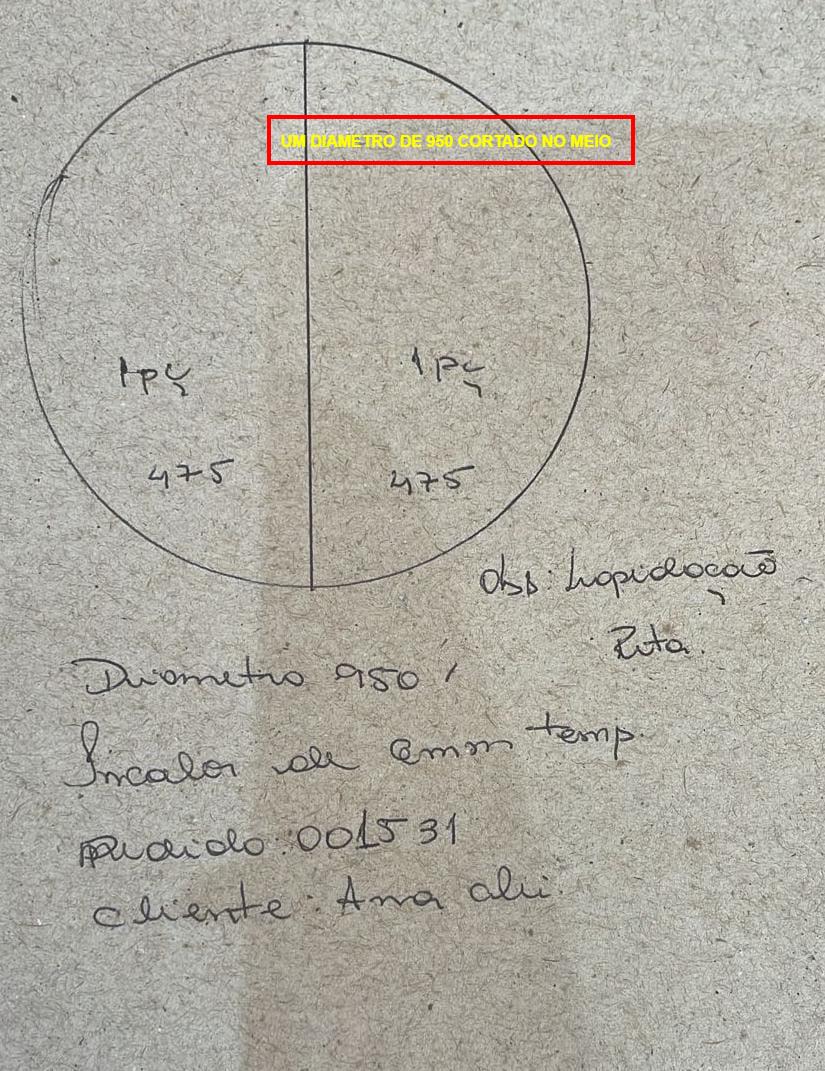 UM DIAMETRO DE 950 CORTADO NO MEIO
1pç 1pç
475 475
Obs: Lapidação
Reta.
Diametro 950
Incolor de mm temp.
pedido: 001531
cliente: Ana